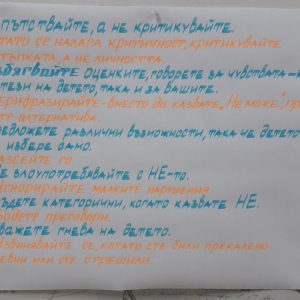 ПЪТСТВАЙТЕ, А НЕ КРИТИКУВАЙТЕ.
ОГАТО СЕ НАЛАГА КРИТИЧНОСТ, КРИТИКУВАЙТЕ
СТЪПКАТА, А НЕ ЛИЧНОСТТА.
ЗБЯГВАЙТЕ ОЦЕНКИТЕ, ГОВОРЕТЕ ЗА ЧУВСТВАТА –
ТЕЗИ НА ДЕТЕТО, ТАКА И ЗА ВАШИТЕ.
ЕРИФРАЗИРАЙТЕ – ВМЕСТО ДА КАЗВАТЕ „НЕ МОЖЕ", ПР
ТЕ АЛТЕРНАТИВА.
РЕДЛОЖЕТЕ РАЗЛИЧНИ ВЪЗМОЖНОСТИ, ТАКА ЧЕ ДЕТЕТО
ИЗБЕРЕ САМО.
АЗСЕЙТЕ ГО
Е ЗЛОУПОТРЕБЯВАЙТЕ С НЕ-ТО.
ГНОРИРАЙТЕ МАЛКИТЕ НАРУШЕНИЯ
ЪДЕТЕ КАТЕГОРИЧНИ, КОГАТО КАЗВАТЕ НЕ.
ОДЕТЕ ПРЕГОВОРИ.
ВАЖЕТЕ ГНЕВА НА ДЕТЕТО.
ЗВИНЯВАЙТЕ СЕ, КОГАТО СТЕ БИЛИ ПРЕКАЛЕНО
ЕВНИ ИЛИ СТЕ СГРЕШИЛИ.